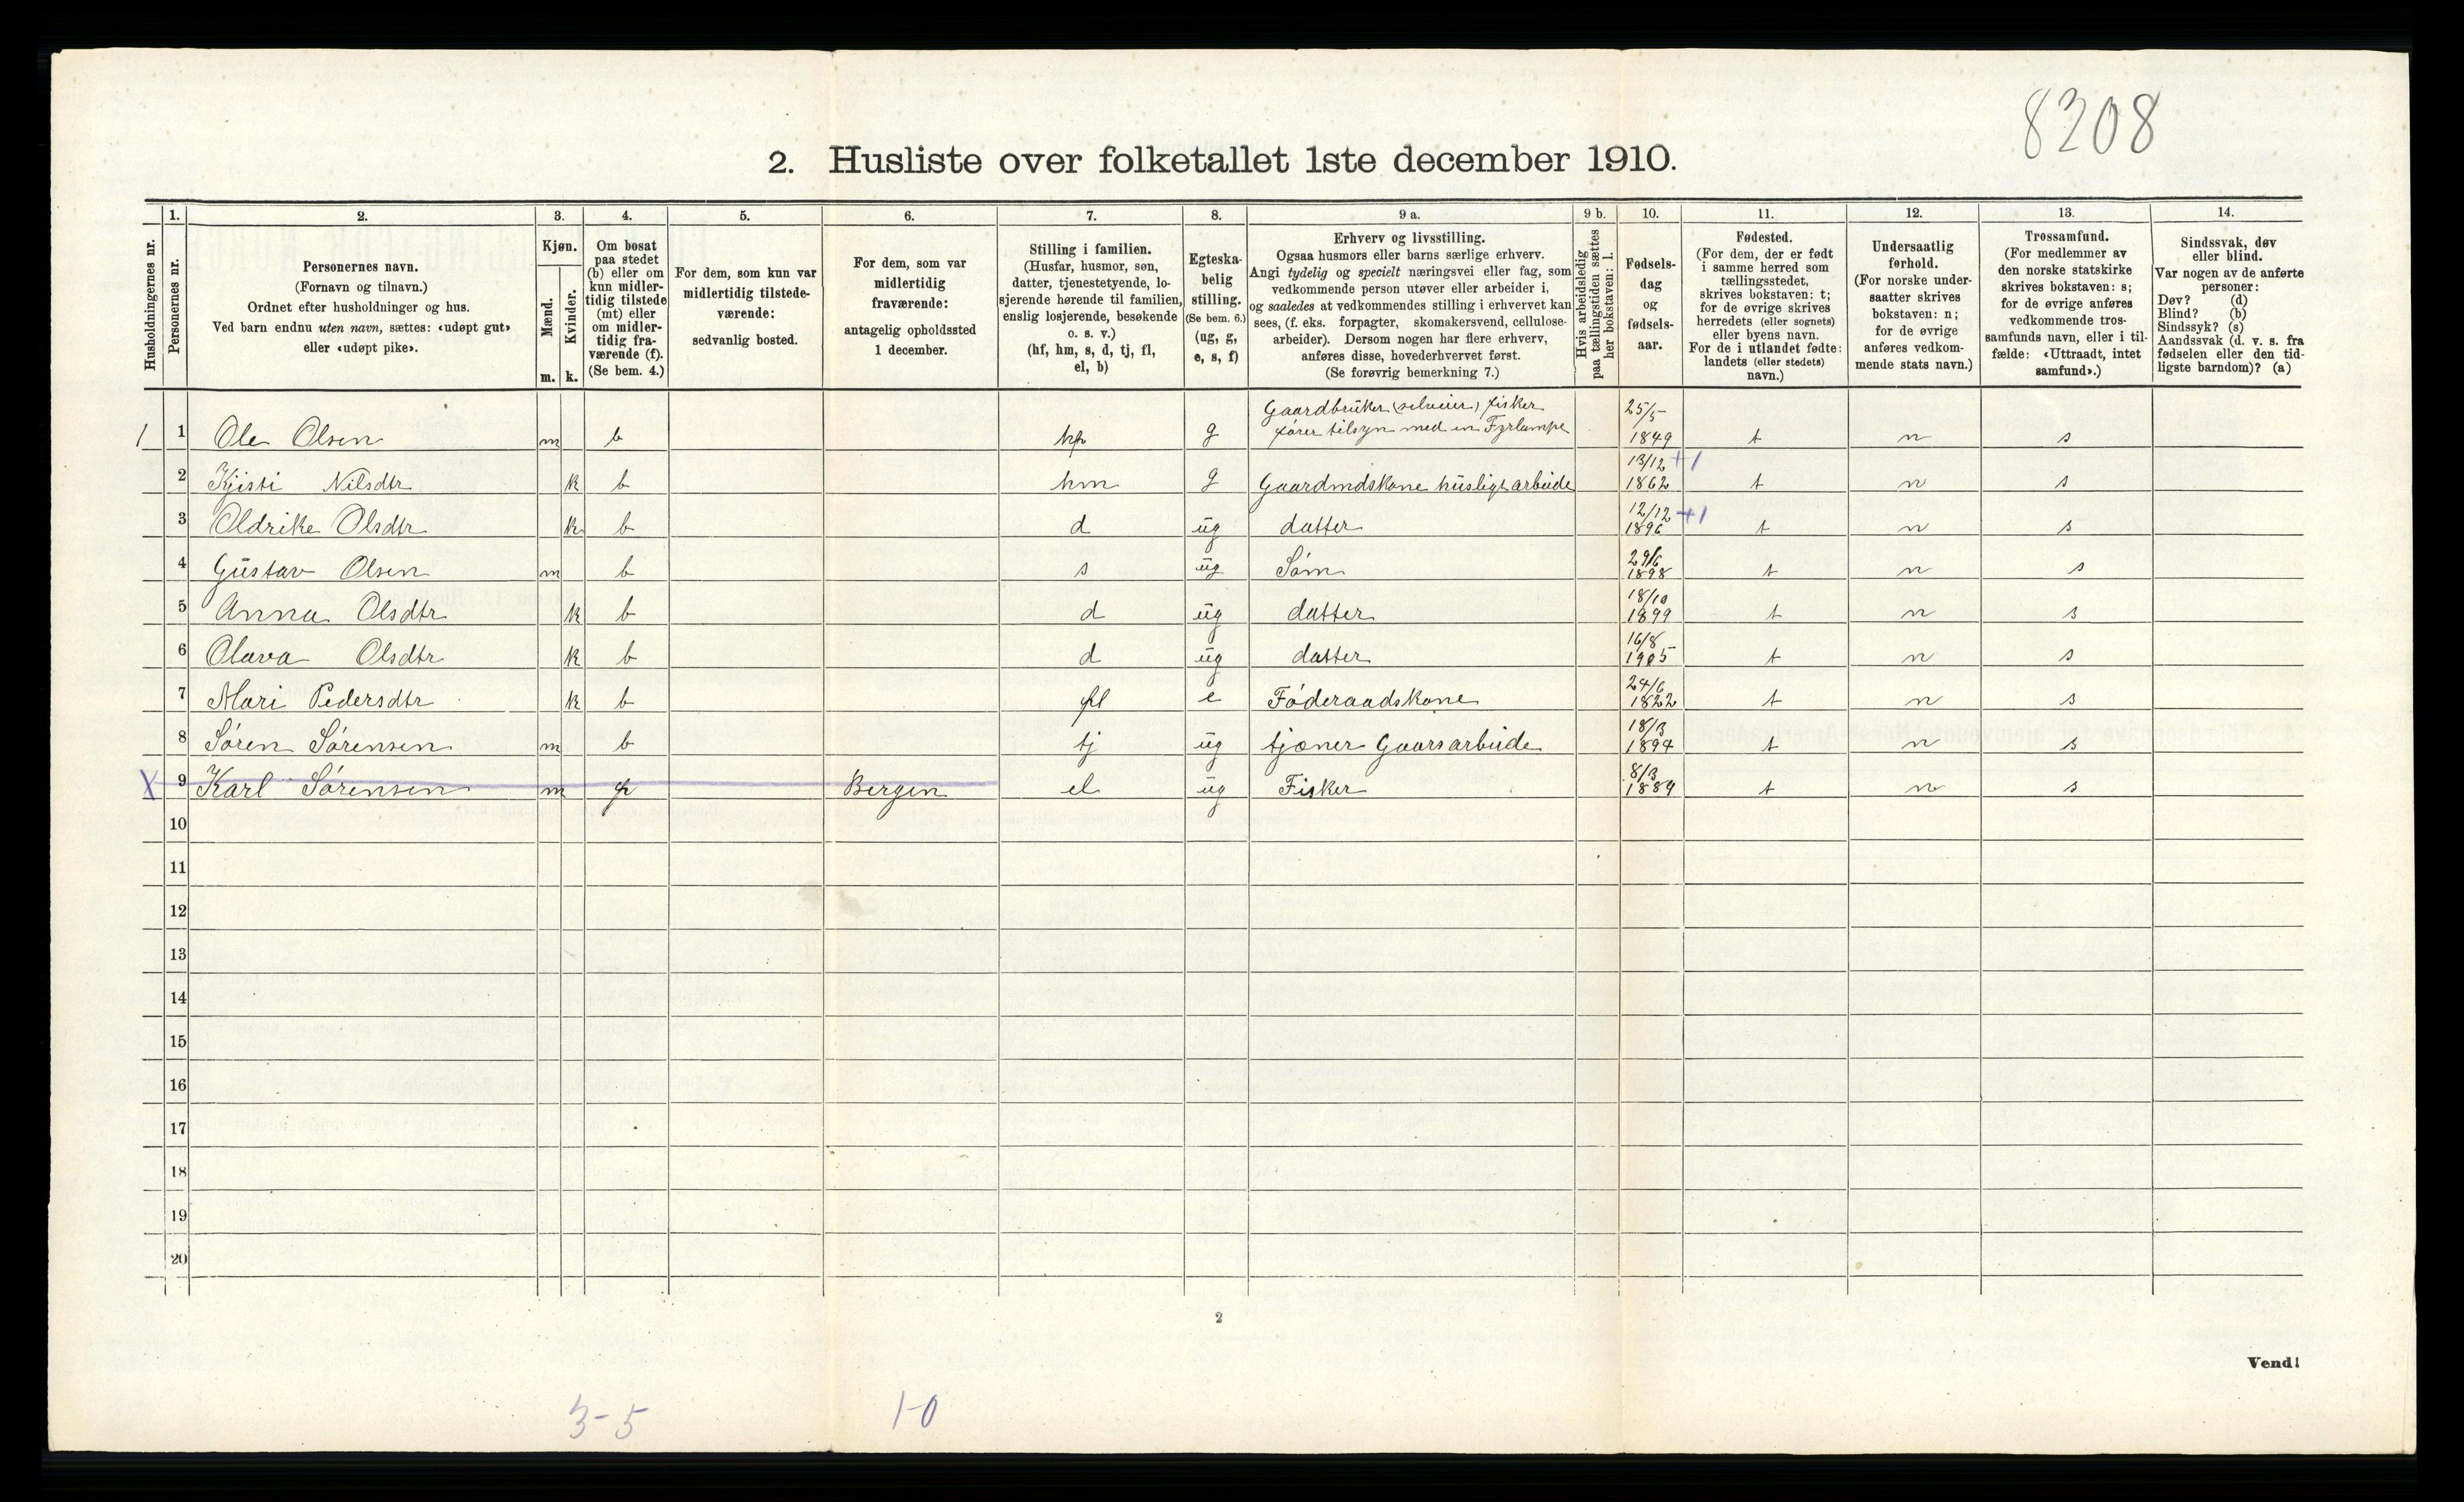 8208
2. Husliste over folketallet 1ste december 1910.
Husholdningernes nr.
1.
Personernes nr.
2.
Personernes navn.
(Fornavn og tilnavn.)
Ordnet efter husholdninger og hus.
Ved barn endnu uten navn, sættes: «udøpt gut»
eller «udøpt pike».
3.
Kjøn.
Mænd.
Kvinder.
m. k.
4.
Om bosat
paa stedet
(b) eller om
kun midler-
tidig tilstede
(mt) eller
om midler-
tidig fra-
værende (f).
(Se bem. 4.)
5.
For dem, som kun var
midlertidig tilstede-
værende:
sedvanlig bosted.
6.
For dem, som var
midlertidig
fraværende:
antagelig opholdssted
1 december.
7.
Stilling i familien.
(Husfar, husmor, søn,
datter, tjenestetyende, lo-
sjerende hørende til familien,
enslig losjerende, besøkende
o. s. v.)
(hf, hm, s, d, tj, fl,
el, b)
8.
Egteska-
belig
stilling.
(Se bem. 6.)
(ug, g,
e, s, f)
9 a.
Erhverv og livsstilling.
Ogsaa husmors eller barns særlige erhverv.
Angi tydelig og specielt næringsvei eller fag, som
vedkommende person utøver eller arbeider i,
og saaledes at vedkommendes stilling i erhvervet kan
sees, (f. eks. forpagter, skomakersvend, cellulose-
arbeider). Dersom nogen har flere erhverv,
anføres disse, hovederhvervet først.
(Se forøvrig bemerkning 7.)
9 b.
Hvis arbeidsledig
paa tællingstiden sættes
her bokstaven: l.
10.
Fødsels-
dag
og
fødsels-
aar.
11.
Fødested.
(For dem, der er født
i samme herred som
tællingsstedet,
skrives bokstaven: t;
for de øvrige skrives
herredets (eller sognets)
eller byens navn.
For de i utlandet fødte:
landets (eller stedets)
navn.)
12.
Undersaatlig
forhold.
(For norske under-
saatter skrives
bokstaven: n;
for de øvrige
anføres vedkom-
mende stats navn.)
13.
Trossamfund.
(For medlemmer av
den norske statskirke
skrives bokstaven: s;
for de øvrige anføres
vedkommende tros-
samfunds navn, eller i til-
fælde: «Uttraadt, intet
samfund».)
14.
Sindssvak, døv
eller blind.
Var nogen av de anførte
personer:
Døv? (d)
Blind? (b)
Sindssyk? (s)
Aandssvak (d. v. s. fra
fødselen eller den tid-
ligste barndom)? (a)
1 1 Ole Olsen m b hf g Gaardbruker (selveier) fisker
fører tilsyn med en Fyrlampe 25/5 1849 t n s
2 Kjisti Nilsdtr k b hm g Gaardmdskone husligt arbeide 13/12 1862 +1 t n s
3 Oldrike Olsdtr k b d ug datter 12/12 1896 +1 t n s
4 Gustav Olsen m b s ug Søm 29/6 1898 t n s
5 Anna Olsdtr k b d ug datter 18/10 1899 t n s
6 Olava Olsdtr k b d ug datter 16/8 1905 t n s
7 Mari Pedersdtr k b fl e Føderaadskone 24/6 1822 t n s
8 Søren Sørensen m b tj ug tjæner Gaarsarbeide 18/3 1894 t n s
X 9 Karl Sørensen m f Bergen el ug Fisker 8/3 1889 t n s
10
11
12
13
14
15
16
17
18
19
20
2
Vend!
3-5 1-0